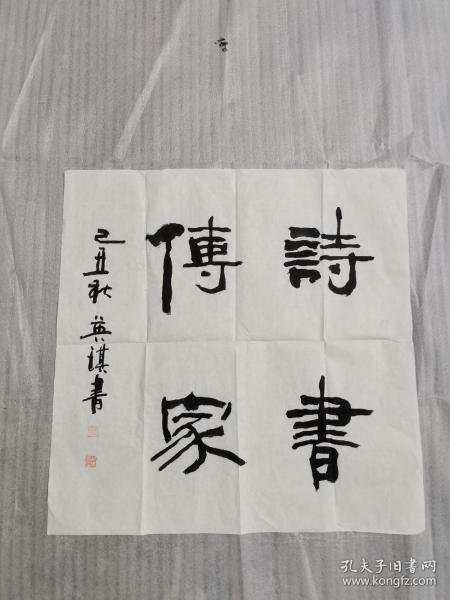 詩書
傳家
己丑秋 英琪書
孔夫子旧书网
www.kongfz.com